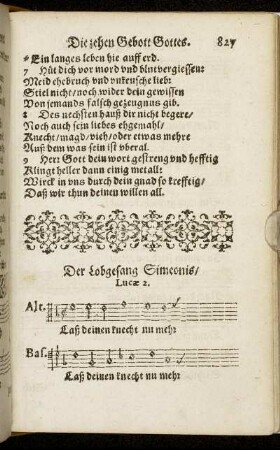 Die zehen Gebott Gottes. 827
Ein langes leben hie auff erd.
7 Hüt dich vor mord vnd blutvergiessen:
Meid ehebruch vnd vnkeusche lieb:
Stiel nicht/ noch wider dein gewissen
Von jemands falsch gezeugnus gib.
8 Des nechsten hauß dir nicht begere/
Noch auch sein liebes ehgemahl/
Knecht/ magd/ vieh/ oder etwas mehre
Auß dem was sein ist vberal.
9 Herr Gott dein wort gestreng vnd hefftig
Klingt heller dann einig metall:
Wirck in vns durch dein gnad so krefftig/
Daß wir thun deinen willen all.
Der Lobgesang Simeonis/
Lucæ 2.
Alt.
Laß deinen knecht nu mehr
Bas.
Laß deinen knecht nu mehr